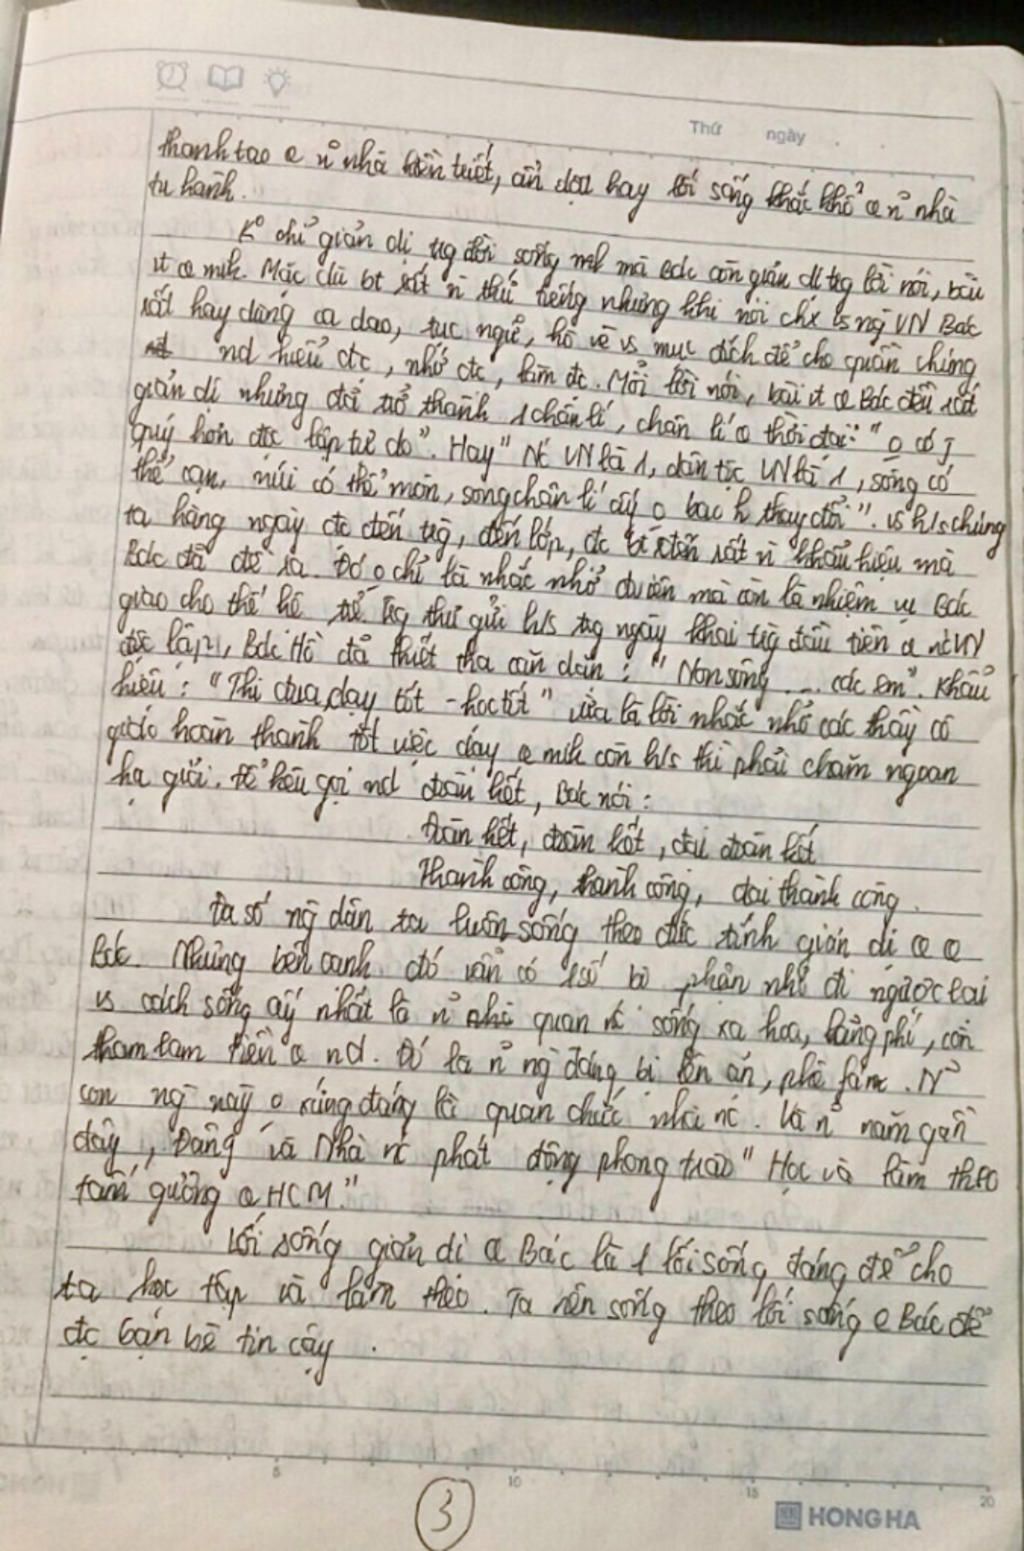 Thứ ngày
thanh tao @ n~ nhà hiền triết, ẩn dật hay lối sống khắc khổ @ n~ nhà
tu hành."
K° chỉ giản dị tr̃g đời sống mà Bác còn giản dị tr̃g lời nói, bài
it @ mìh. Mặc dù bt rất n` thứ tiếng nhưng khi nói chx vs ng̀ VN Bác
rất hay dùng ca dao, tục ngữ, hò vè vs mục đích để cho quần chúng
nd hiểu đc, nhớ đc, làm đc. Mỗi lời nói, bài it @ Bác đều rất
giản dị nhưng đã trở thành 1 chân lí, chân lí @ thời đại: " 0 có j
quý hơn độc lập tự do". Hay " Nc VN là 1, dân tộc VN là 1, sông có
thể cạn, núi có thể mòn, song chân lí ấy 0 bao h thay đổi". vs h/s chúng
ta hàng ngày đc đến trg, đến lớp, đc rất n` khẩu hiệu mà
Bác đã đề ra. Đó 0 chỉ là nhắc nhở mà còn là nhiệm vụ Bác
giao cho thế hệ trẻ. Trg thư gửi h/s trg ngày khai trg đầu tiên @ nc VN
độc lập, Bác Hồ đã thiết tha căn dặn : " Non sông .... các em". Khẩu
hiệu : "Thi đua dạy tốt - học tốt " vừa là lời nhắc nhở các thầy cô
giáo hoàn thành tốt việc dạy @ mìh còn h/s thì phải chăm ngoan
học giỏi. Để kêu gọi nd đoàn kết, Bác nói :
Đoàn kết, đoàn kết, đại đoàn kết
Thành công, thành công, đại thành công.
Đa số ng̀ dân ta luôn sống theo đức tính giản dị @
Bác. Nhưng bên cạnh đó vẫn có 1 số bộ phận nhỏ đi ngược lại
vs cách sống ấy nhất là n~ quan sống xa hoa, lãng phí, còn
tham lam tiền @ nd. Đó là n~ ng̀ đáng bị lên án, phê fán. N~
con ng̀ này 0 xứng đáng là quan chức nhà nc. Và n~ năm gần
đây, Đảng và Nhà nc phát động phong trào " Học và làm theo
tấm gương @ HCM."
Lối sống giản dị @ Bác là 1 lối sống đáng để cho
ta học tập và làm theo. Ta nên sống theo lối sống @ Bác để
đc bạn bè tin cậy .
5 10 15 20
3
HONG HA